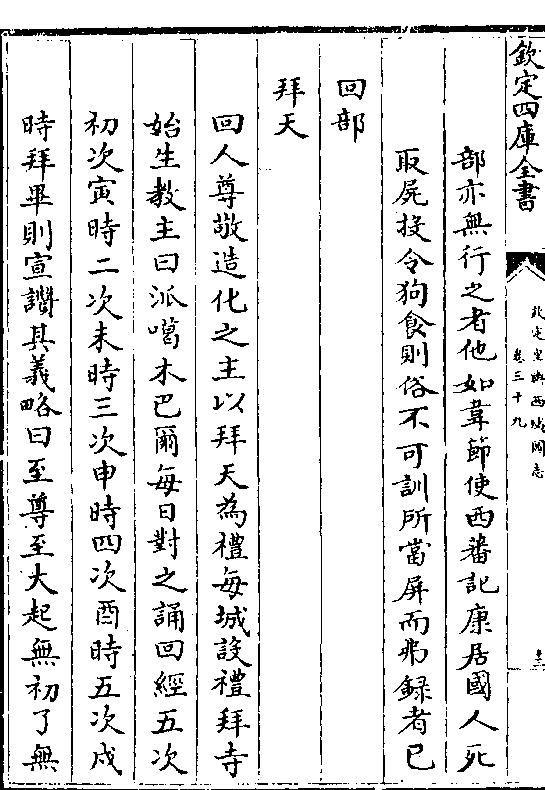 欽定四庫全書
欽定皇輿西域圖志
卷三十九
部亦無行之者他如韋節使西蕃記康居國人死
取屍投令狗食則俗不可訓所當屏而弗録者已
回部
拜天
回人尊敬造化之主以拜天為禮每城設禮拜寺
始生教主曰派噶木巴爾每日對之誦回經五次
初次寅時二次未時三次申時四次酉時五次戍
時拜畢則宣讚其義略曰至尊至大起無初了無